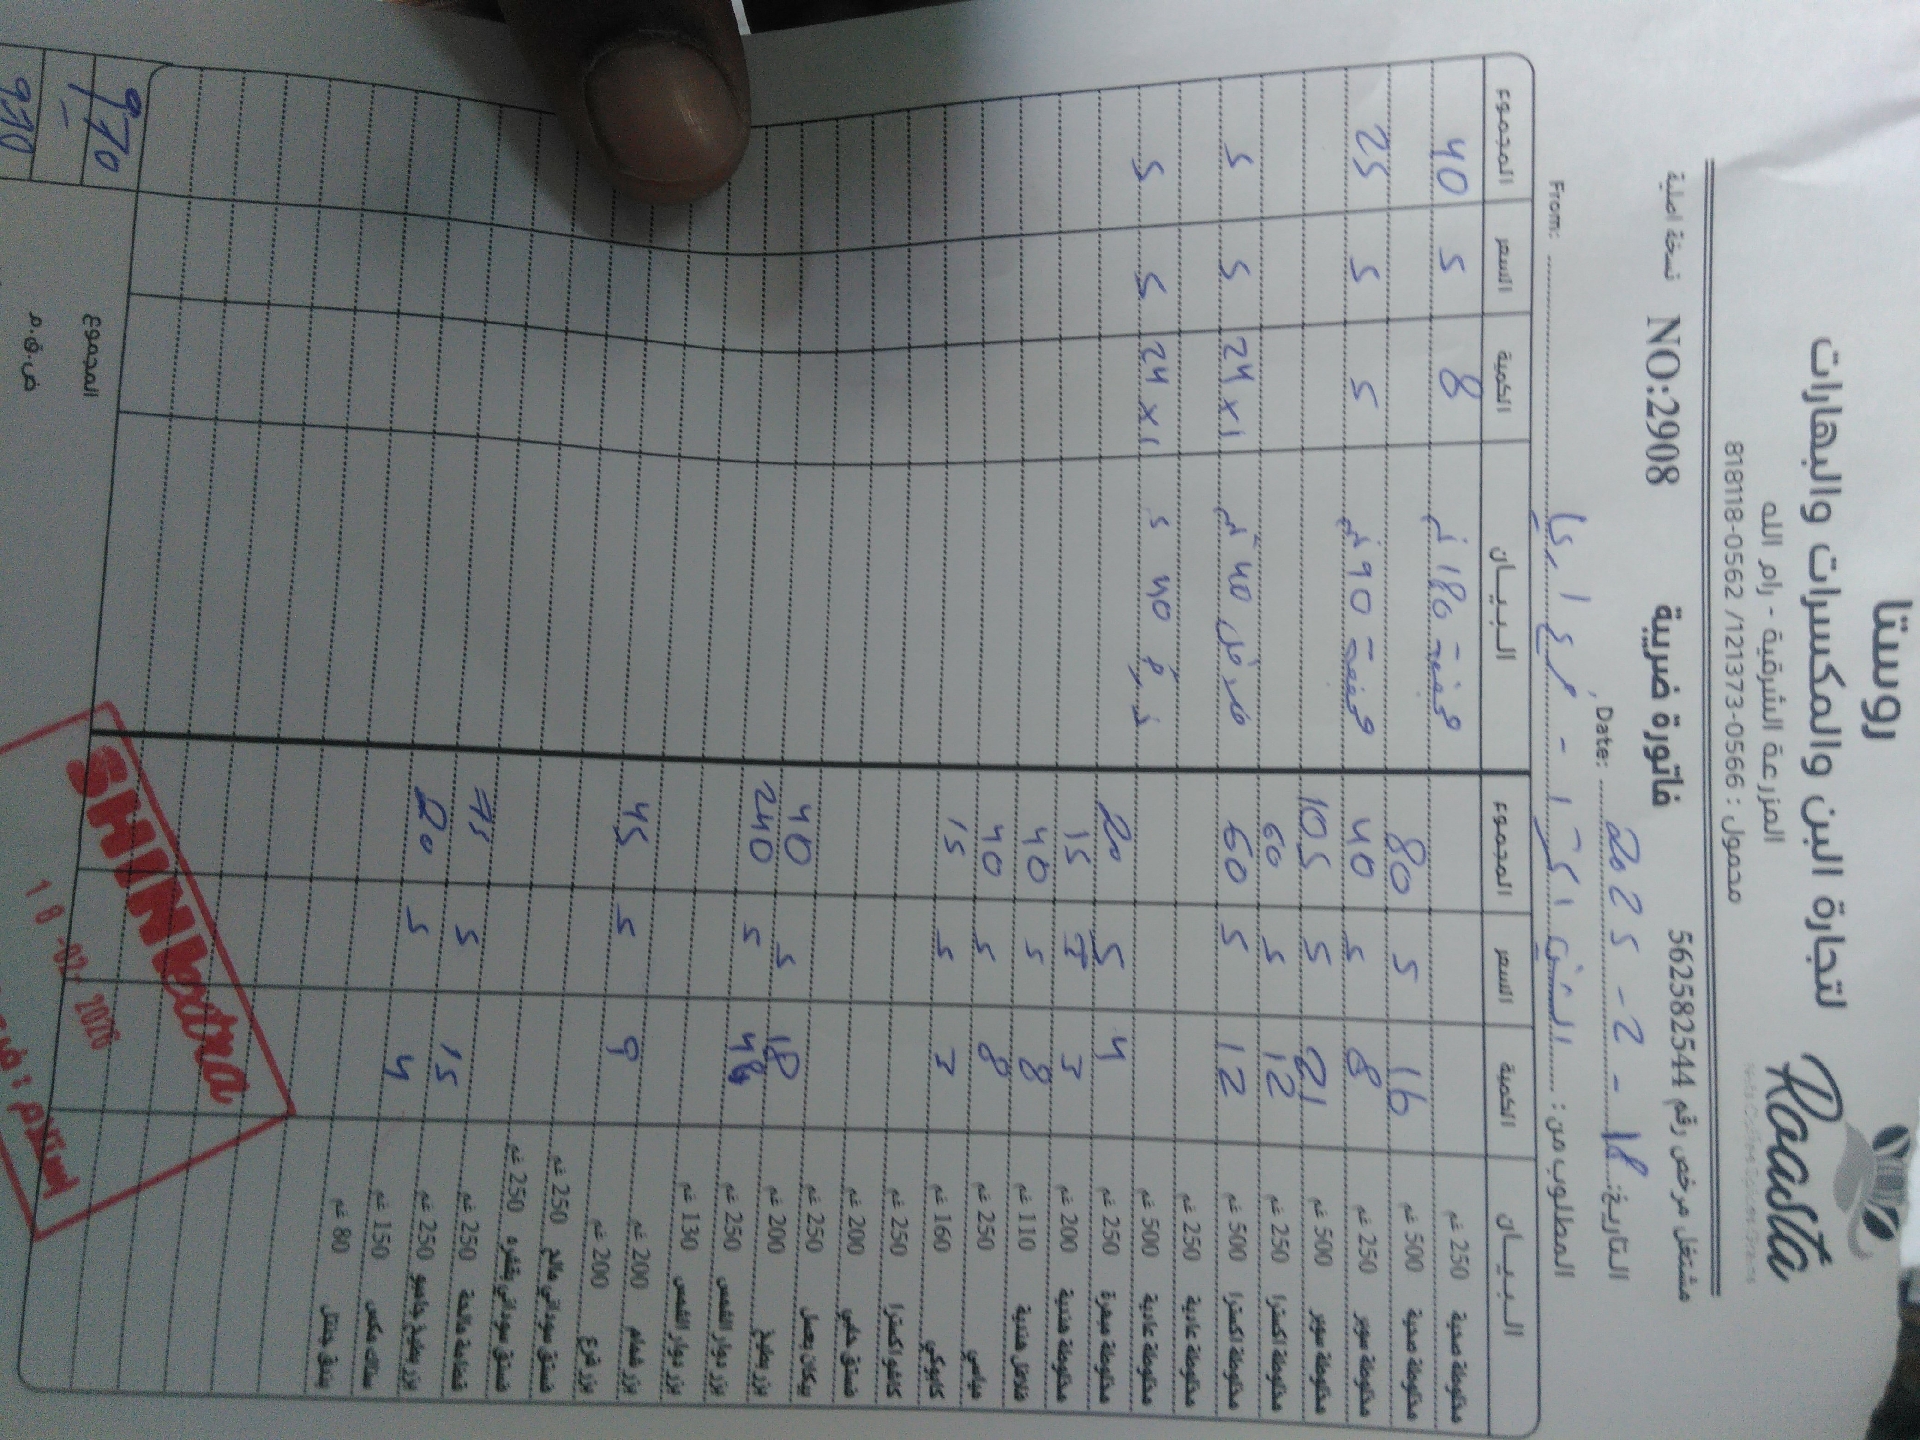 روستا
Roasta
Nuts Coffee Spices Grains
لتجارة البن والمكسرات والبهارات
المزرعة الشرقية - رام الله
محمول : 0566-121373/ 0562-818118
مشتغل مرخص رقم 562582544
فاتورة ضريبية
NO:2908
نسخة اصلية
التاريخ: 18 - 2 - 2025 Date:
المطلوب من: From:
البيـــان الكمية السعر المجموع البيـــان الكمية السعر المجموع
مخلوطة صحية 250 غم 180 8 5 40
مخلوطة صحية 500 غم 16 5 80
مخلوطة سوبر 250 غم 8 5 40 90 5 5 25
مخلوطة سوبر 500 غم 21 5 105
مخلوطة اكسترا 250 غم 12 5 60
مخلوطة اكسترا 500 غم 12 5 60 40 24x1 5 5
مخلوطة عادية 250 غم
مخلوطة عادية 500 غم 40 24x1 5 5
مخلوطة مبهرة 250 غم 4 5 20
مخلوطة هندية 200 غم 3 15
فلافل هندية 110 غم 8 5 40
250 غم 8 5 40
كابوكي 160 غم 3 5 15
كاشو اكسترا 250 غم
فستق حلبي 200 غم
بيكان بعسل 250 غم 18 5 40
بزر بطيخ 200 غم 48 5 240
بزر دوار الشمس 250 غم
بزر دوار الشمس 130 غم
بزر شمام 200 غم 9 5 45
بزر قرع 200 غم
فستق سوداني مالح 250 غم
فستق سوداني بقشره 250 غم
قضامة مالحة 250 غم 15 5 75
بزر بطيخ جامبو 250 غم 4 5 20
سناك مكس 150 غم
بندق 80 غم
المجموع 970
ض.ق.م -
SHINI extra
18 -02- 2026
استلام :